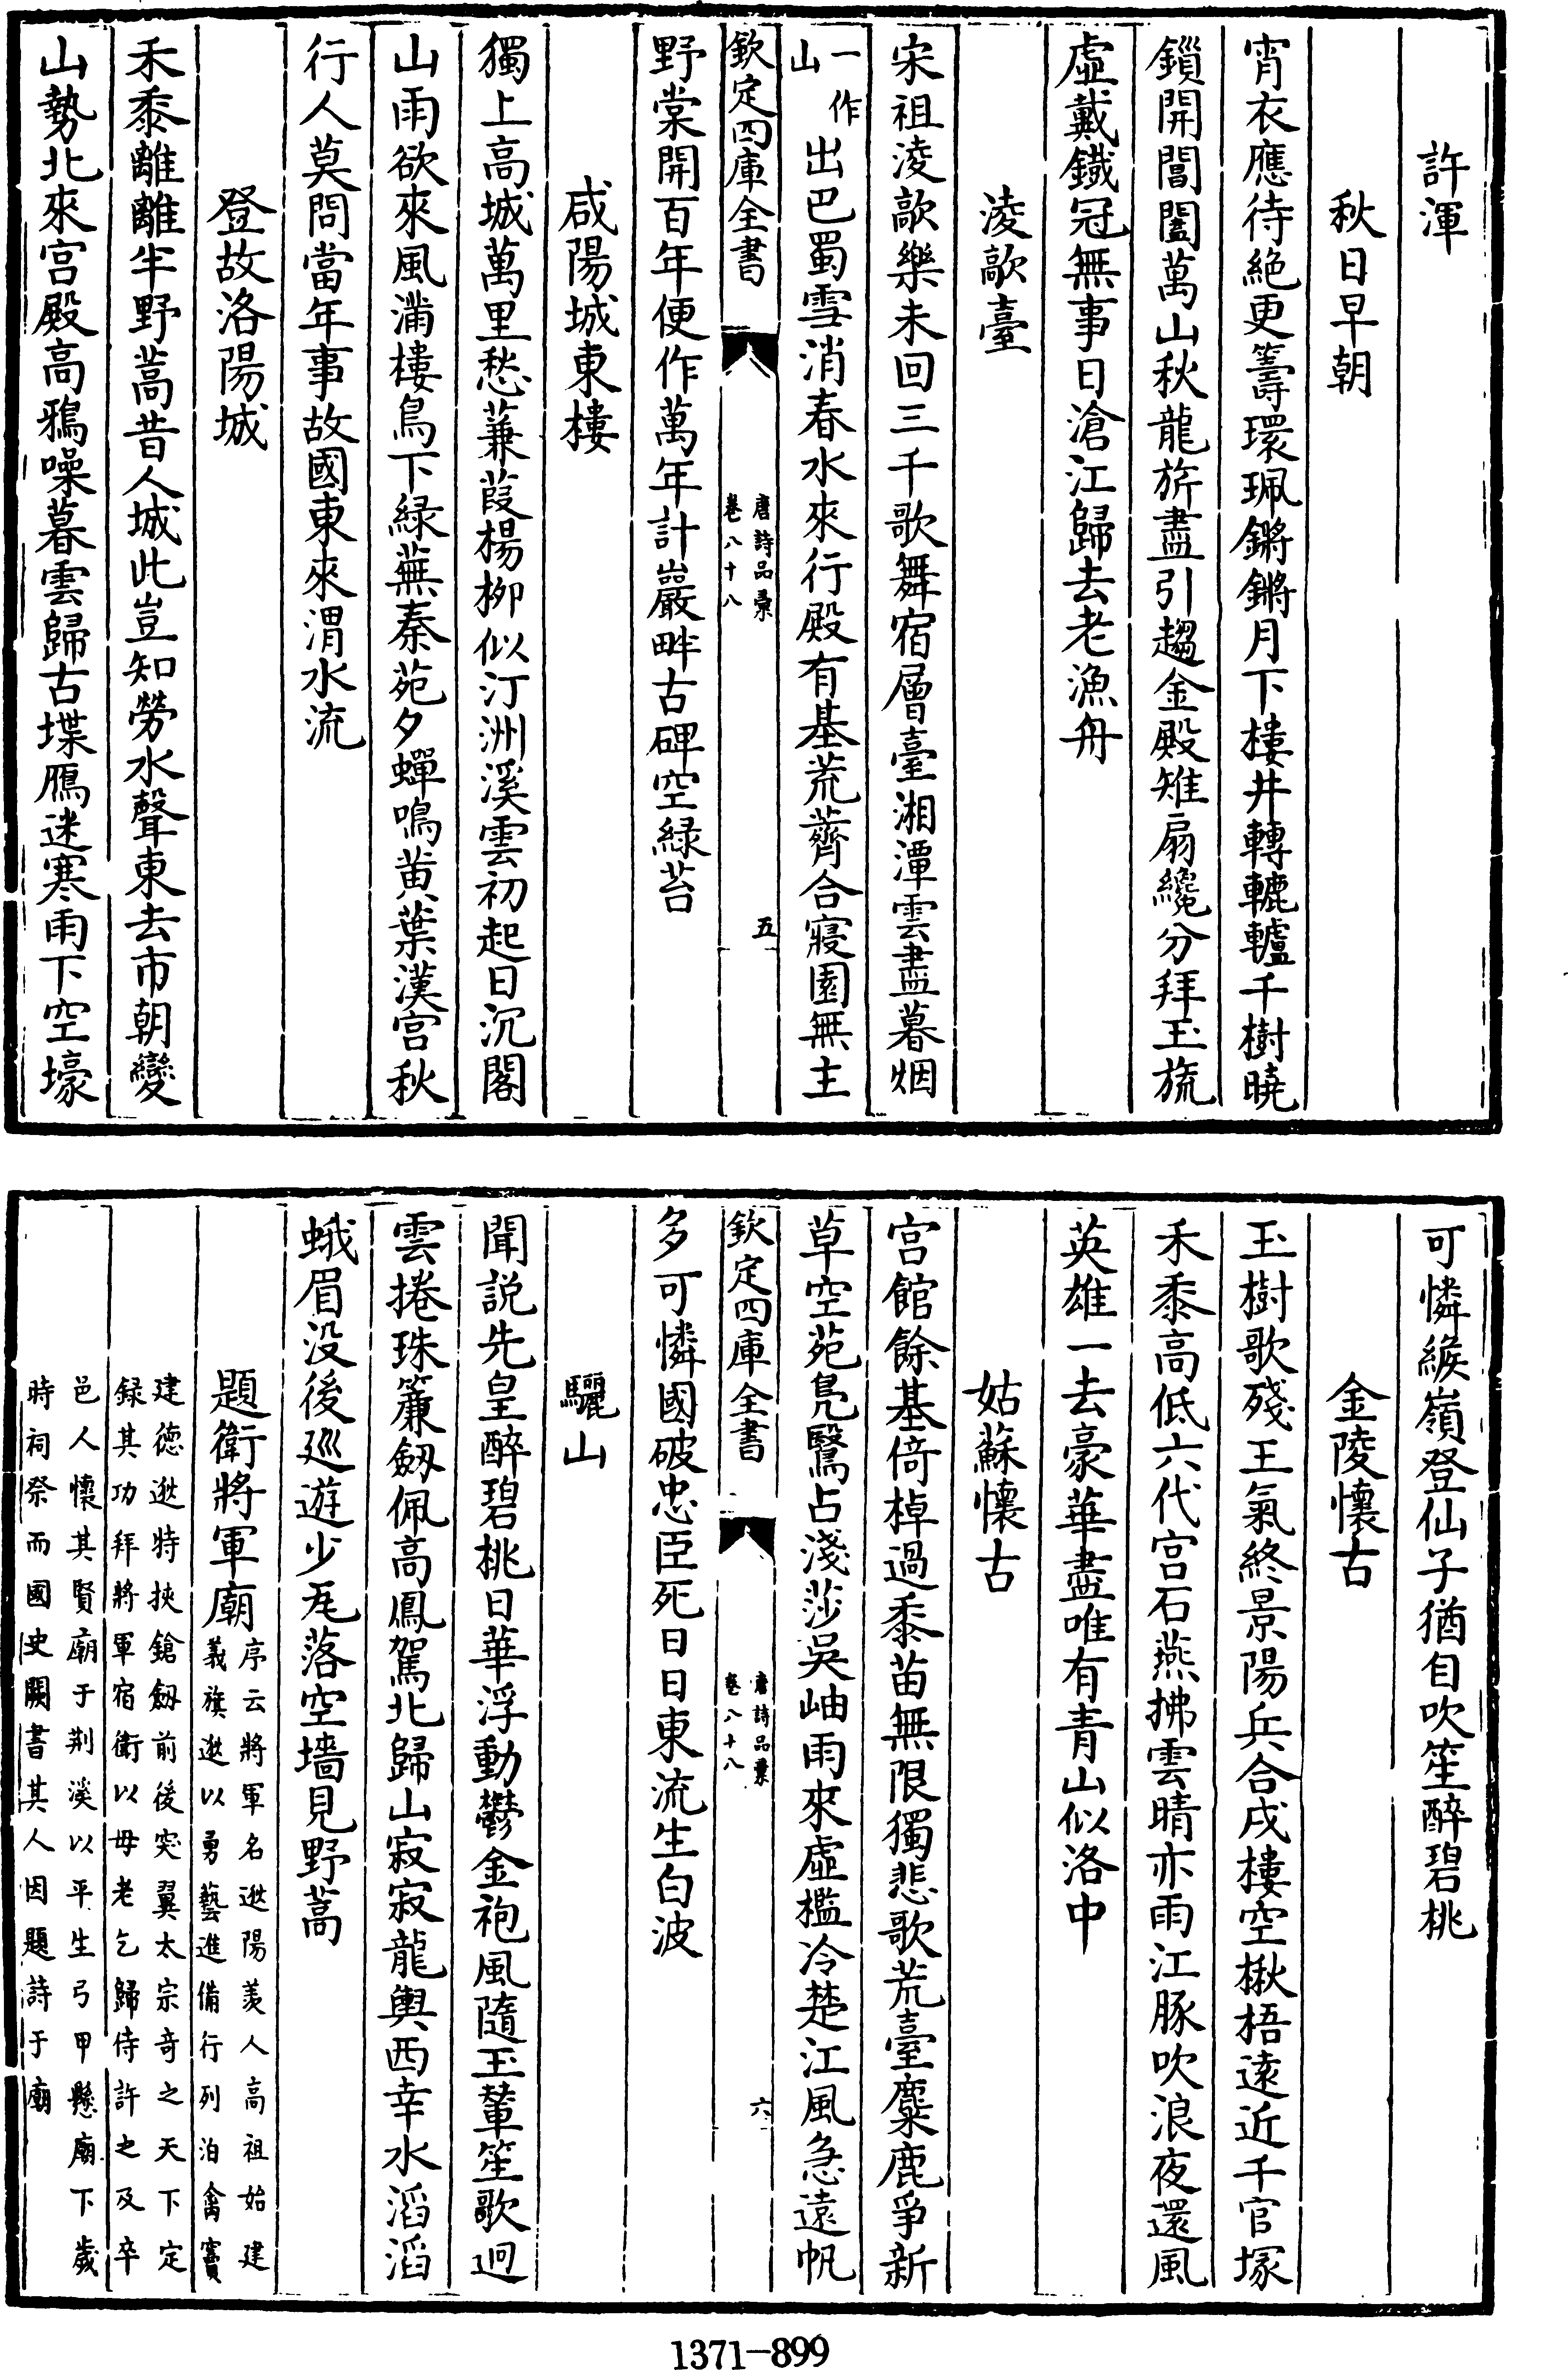 許渾
秋日早朝
宵衣應待絶更籌環珮鏘鏘月下樓井轉轆轤千樹曉
鎻開閶闔萬山秋龍旂盡引趨金殿雉扇纔分拜玉旒
虛戴鐵冠無事日滄江歸去老漁舟
淩歊臺
宋祖淩歊樂未回三千歌舞宿層臺湘潭雲盡暮烟
一作
山
出巴蜀雪消春水來行殿有基荒薺合寢園無主
欽定四庫全書
唐詩品彙
卷八十八
五
野棠開百年便作萬年計巖畔古碑空緑苔
咸陽城東樓
獨上高城萬里愁蒹葭楊柳似汀洲溪雲初起日沉閣
山雨欲來風滿樓鳥下緑蕪秦苑夕蟬鳴黄葉漢宫秋
行人莫問當年事故國東來渭水流
登故洛陽城
禾黍離離半野蒿昔人城此豈知勞水聲東去市朝變
山勢北來宫殿高鴉噪暮雲歸古堞鴈迷寒雨下空壕
可憐緱嶺登仙子猶自吹笙醉碧桃
金陵懷古
玉樹歌殘王氣終景陽兵合戍樓空楸梧遠近千官塚
禾黍高低六代宫石燕拂雲晴亦雨江豚吹浪夜還風
英雄一去豪華盡唯有青山似洛中
姑蘇懷古
宫館餘基倚棹過黍苗無限獨悲歌荒臺麋鹿爭新
草空苑鳧鷖占淺莎吳岫雨來虛檻冷楚江風急遠帆
欽定四庫全書
唐詩品彙
卷八十八
六
多可憐國破忠臣死日日東流生白波
驪山
聞説先皇醉碧桃日華浮動鬱金袍風隨玉輦笙歌迥
雲捲珠簾劔佩高鳳駕北歸山寂寂龍輿西幸水滔滔
蛾眉没後廵遊少瓦落空墻見野蒿
題衛將軍廟
序云將軍名逖陽羨人高祖始建
義旗逖以勇藝進備行列泊禽竇
建德逖特挾鎗劔前後突翼太宗奇之天下定
録其功拜將軍宿衛以母老乞歸侍許之及卒
邑人懷其賢廟于荆溪以平生弓甲懸廟下歲
時祠祭而國史闕書其人因題詩于廟
1371-899